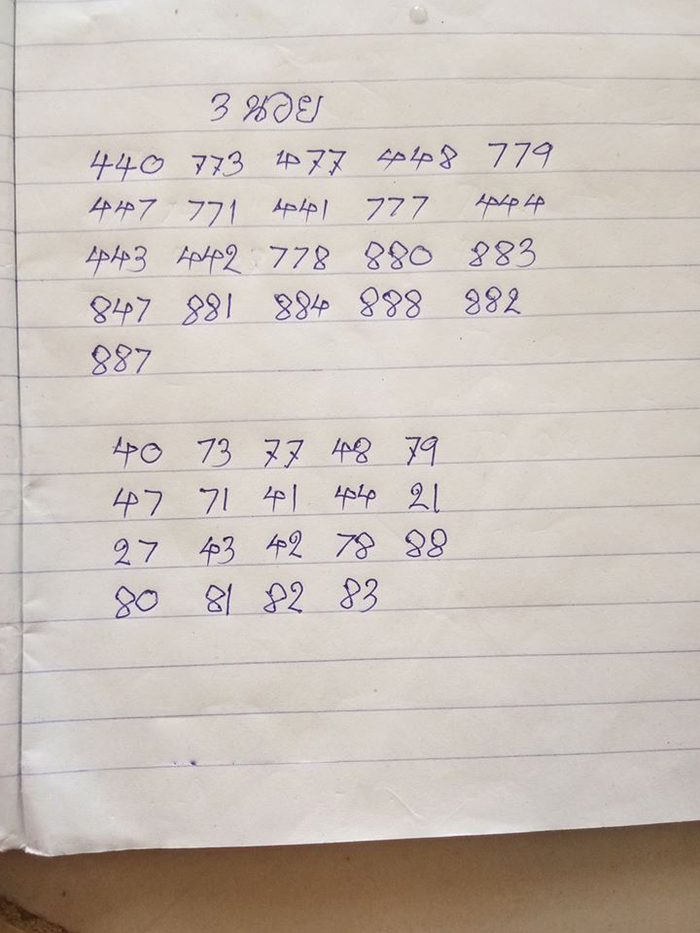 3 นวย
440 773 477 448 779
447 771 441 777 444
443 442 778 880 883
847 881 884 888 882
887
40 73 77 48 79
47 71 41 44 21
27 43 42 78 88
80 81 82 83